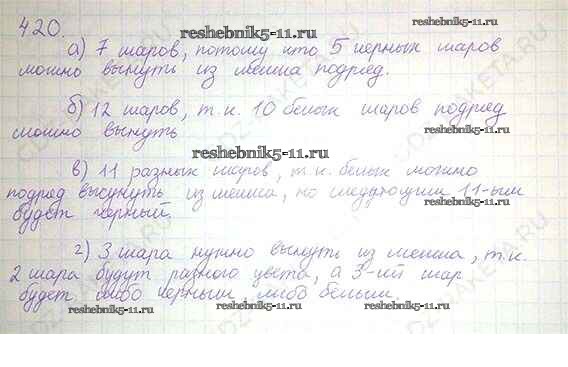 420.
reshebnik5-11.ru
reshebnik5-11.ru
а) 7 шаров, потому что 5 черных шаров
можно вынуть из мешка подряд.
reshebnik5-11.ru
б) 12 шаров, т.к. 10 белых шаров подряд
можно вынуть
reshebnik5-11.ru
reshebnik5-11.ru
в) 11 разных шаров, т.к. белых можно
подряд высунуть из мешка, но следующим 11-ым
будет черный.
reshebnik5-11.ru
г) 3 шара нужно вынуть из мешка, т.к.
2 шара будут разного цвета, а 3-ий шар
будет либо черным либо белым
reshebnik5-11.ru
reshebnik5-11.ru